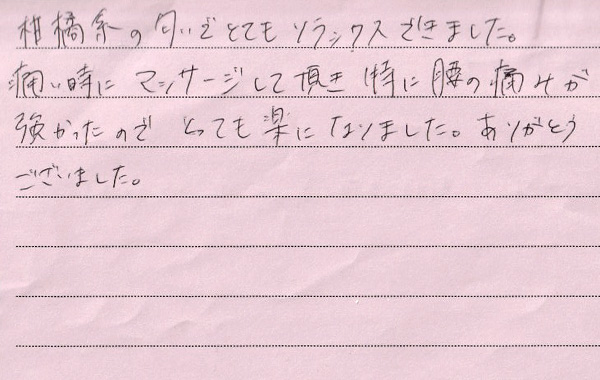 柑橘系の匂いでとてもリラックスできました。
痛い時にマッサージして頂き 特に腰の痛みが
強かったので とっても楽になりました。ありがとう
ございました。